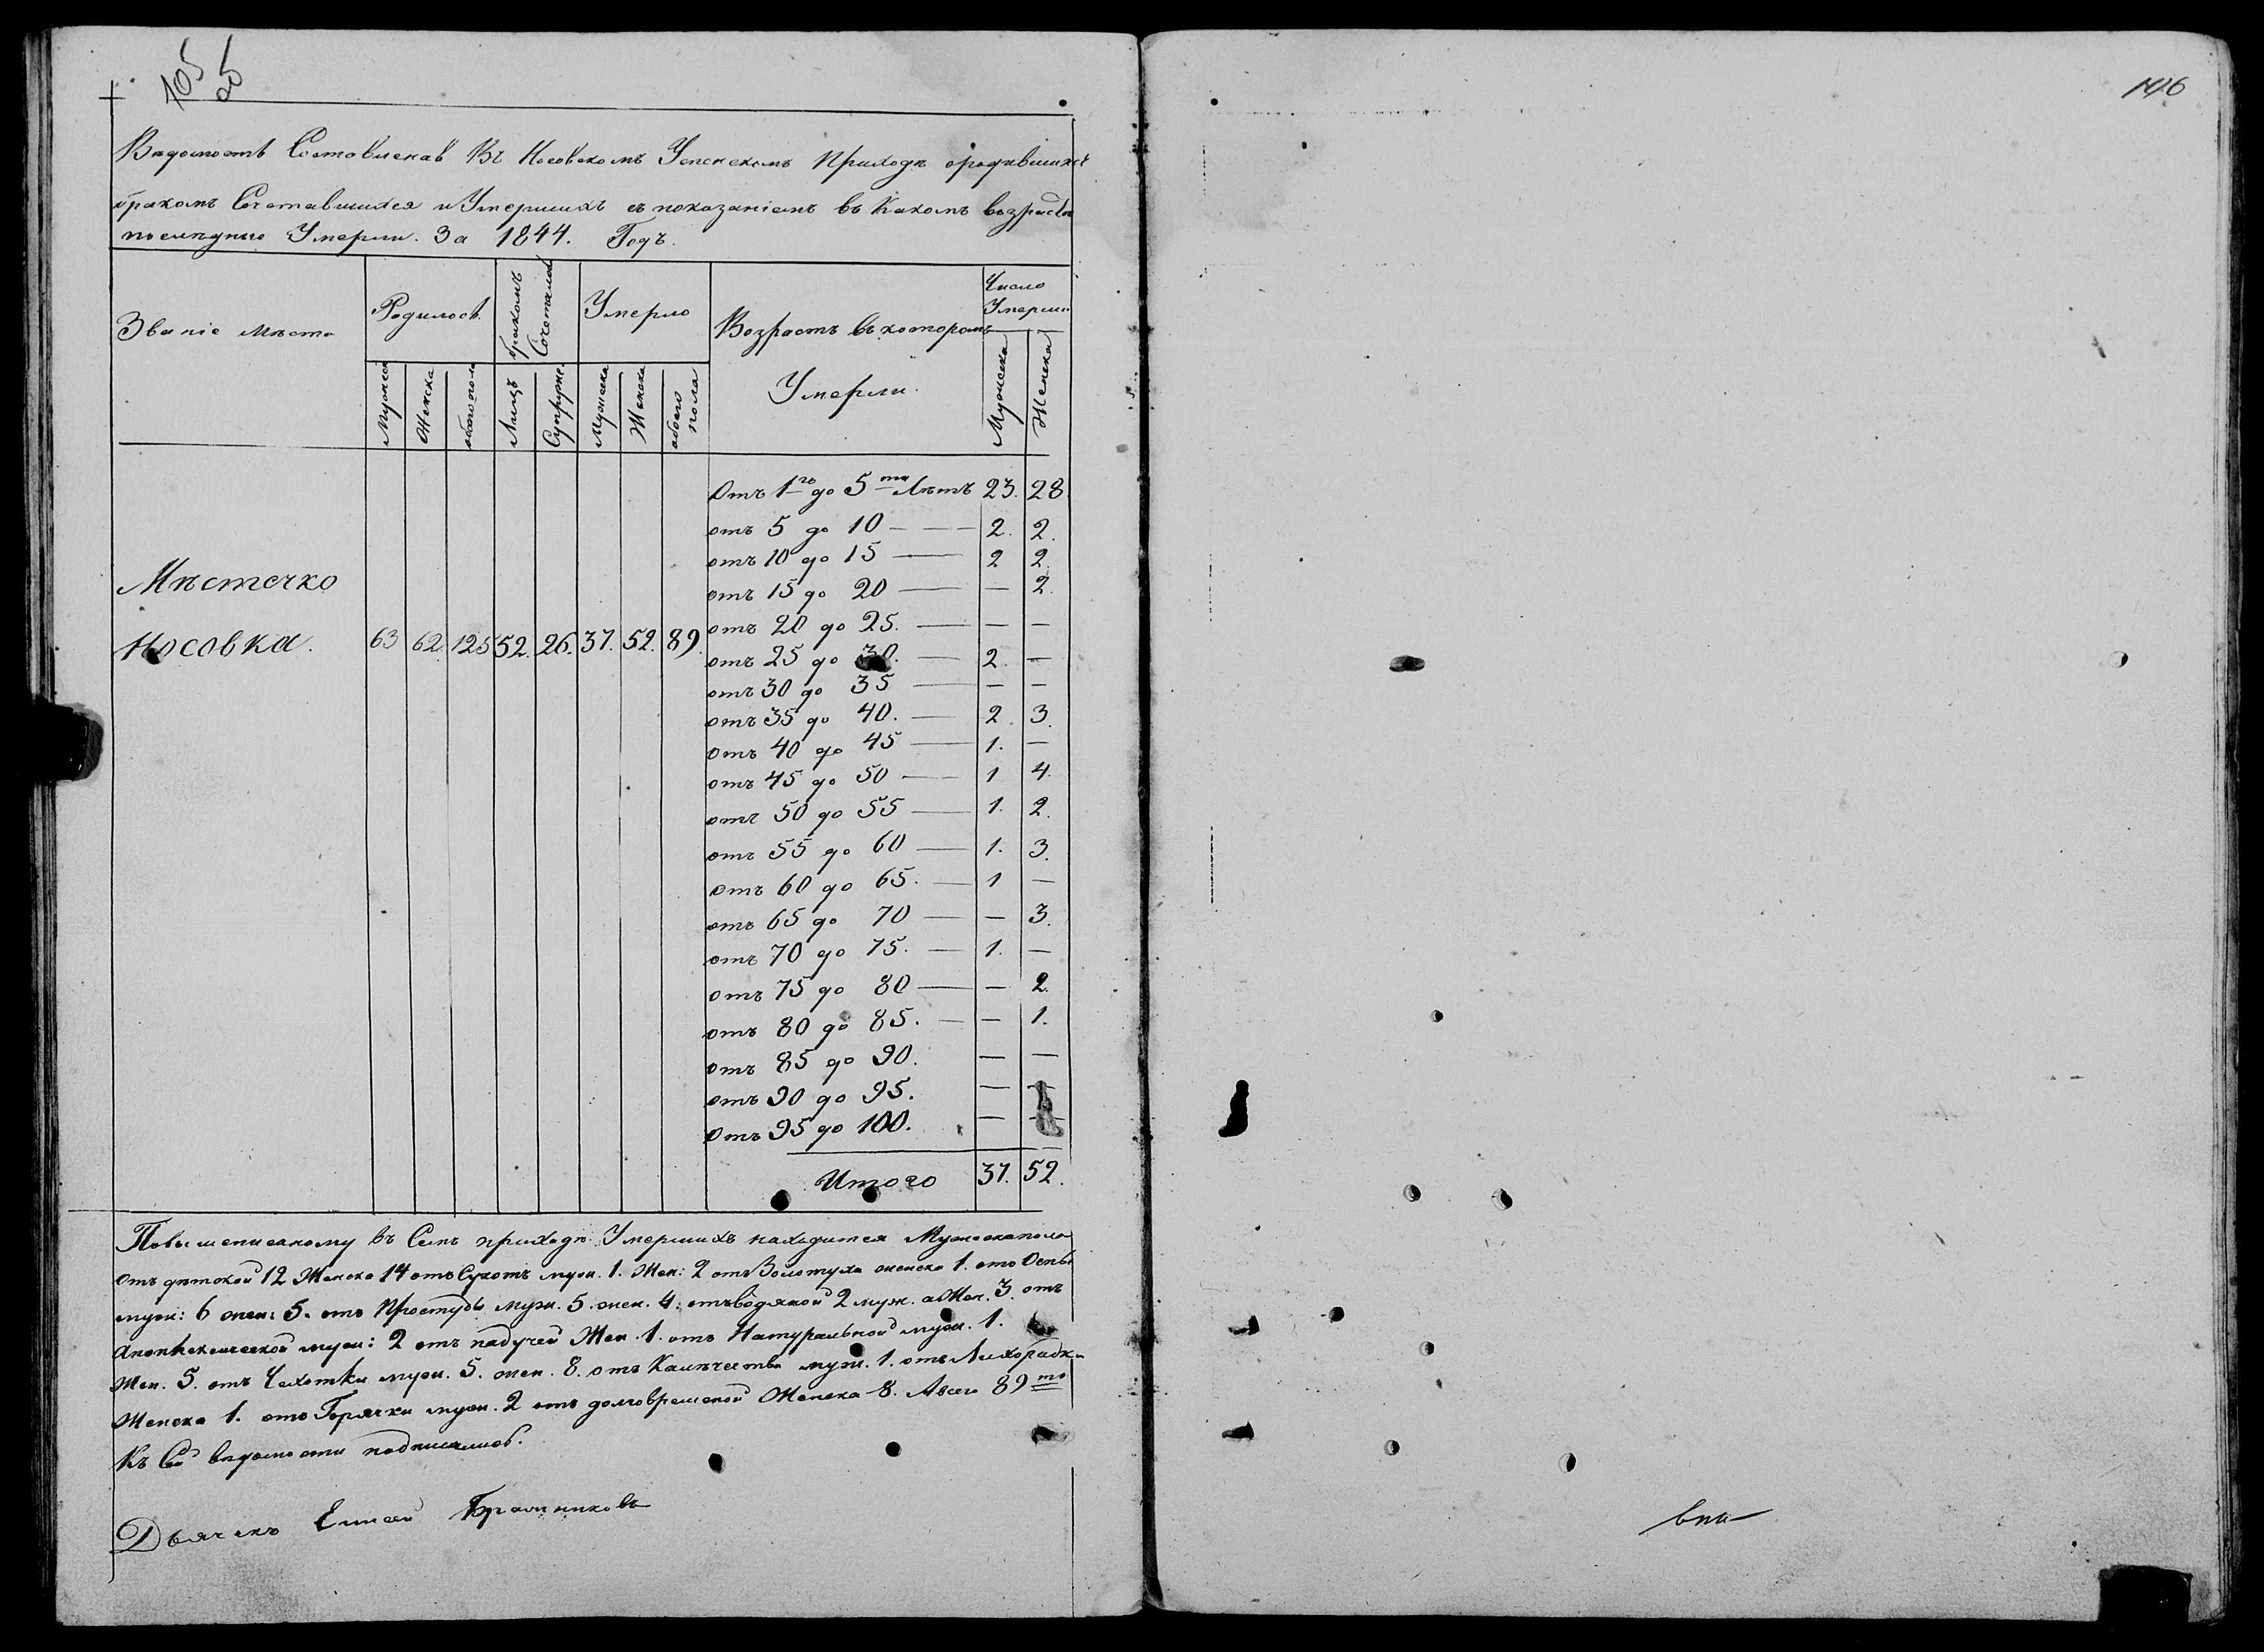 105 об
Ведомость Составленая Въ Носовскомъ Успенскомъ приходе ородившихся
бракомъ Сочетавшихся и Умершихъ съ показаніемъ въ Какомъ возрасте
последные Умерли. За 1844. Годъ.
Званіе места
Родилось
бракомъ Сочеталось
Умерло
Возрастъ въ которомъ
Умерли.
Число
Умерши
Мужеска Женска обоего пола Лицъ Супруже Мужеска Женска обоего пола Мужеска Женска
Отъ 1го до 5ти Летъ 23. 28.
отъ 5 до 10 — — 2. 2.
отъ 10 до 15 — 2 2.
отъ 15 до 20 — — 2.
отъ 20 до 25. — — —
отъ 25 до 30. — 2. —
отъ 30 до 35 — — —
отъ 35 до 40. — 2. 3.
отъ 40 до 45 — 1. —
отъ 45 до 50 — 1 4.
отъ 50 до 55 — 1. 2.
отъ 55 до 60 — 1. 3.
отъ 60 до 65. — 1 —
отъ 65 до 70 — — 3.
отъ 70 до 75. — 1. —
отъ 75 до 80 — — 2.
отъ 80 до 85. — — 1.
отъ 85 до 90. — —
отъ 90 до 95. — —
отъ 95 до 100. — —
Итого 37. 52.
Местечко
Носовка. 63 62 125 52. 26. 37. 52. 89.
Повышеписаному въ Семъ приходе Умершихъ находится Мужеска пола
отъ детской 12 Женска 14 отъ Сухотъ муж. 1. Жен: 2 отъ Золотухи женска 1. отъ Оспы
муж: 6 жен: 5. отъ Простуды муж. 5. жен. 4. отъ водяной 2 муж. а Жен. 3. отъ
Апоплексической муж: 2 отъ падучей Жен. 1. отъ Натуральной муж. 1.
Жен. 5. отъ Чахотки муж. 5. жен. 8. отъ Калечества муж. 1. отъ Лихорадки
Женска 1. отъ Горячки муж. 2 отъ долговременой Женска 8. Авсего 89то
Къ Сей ведомости подписались.
Дьячекъ Елисей
106